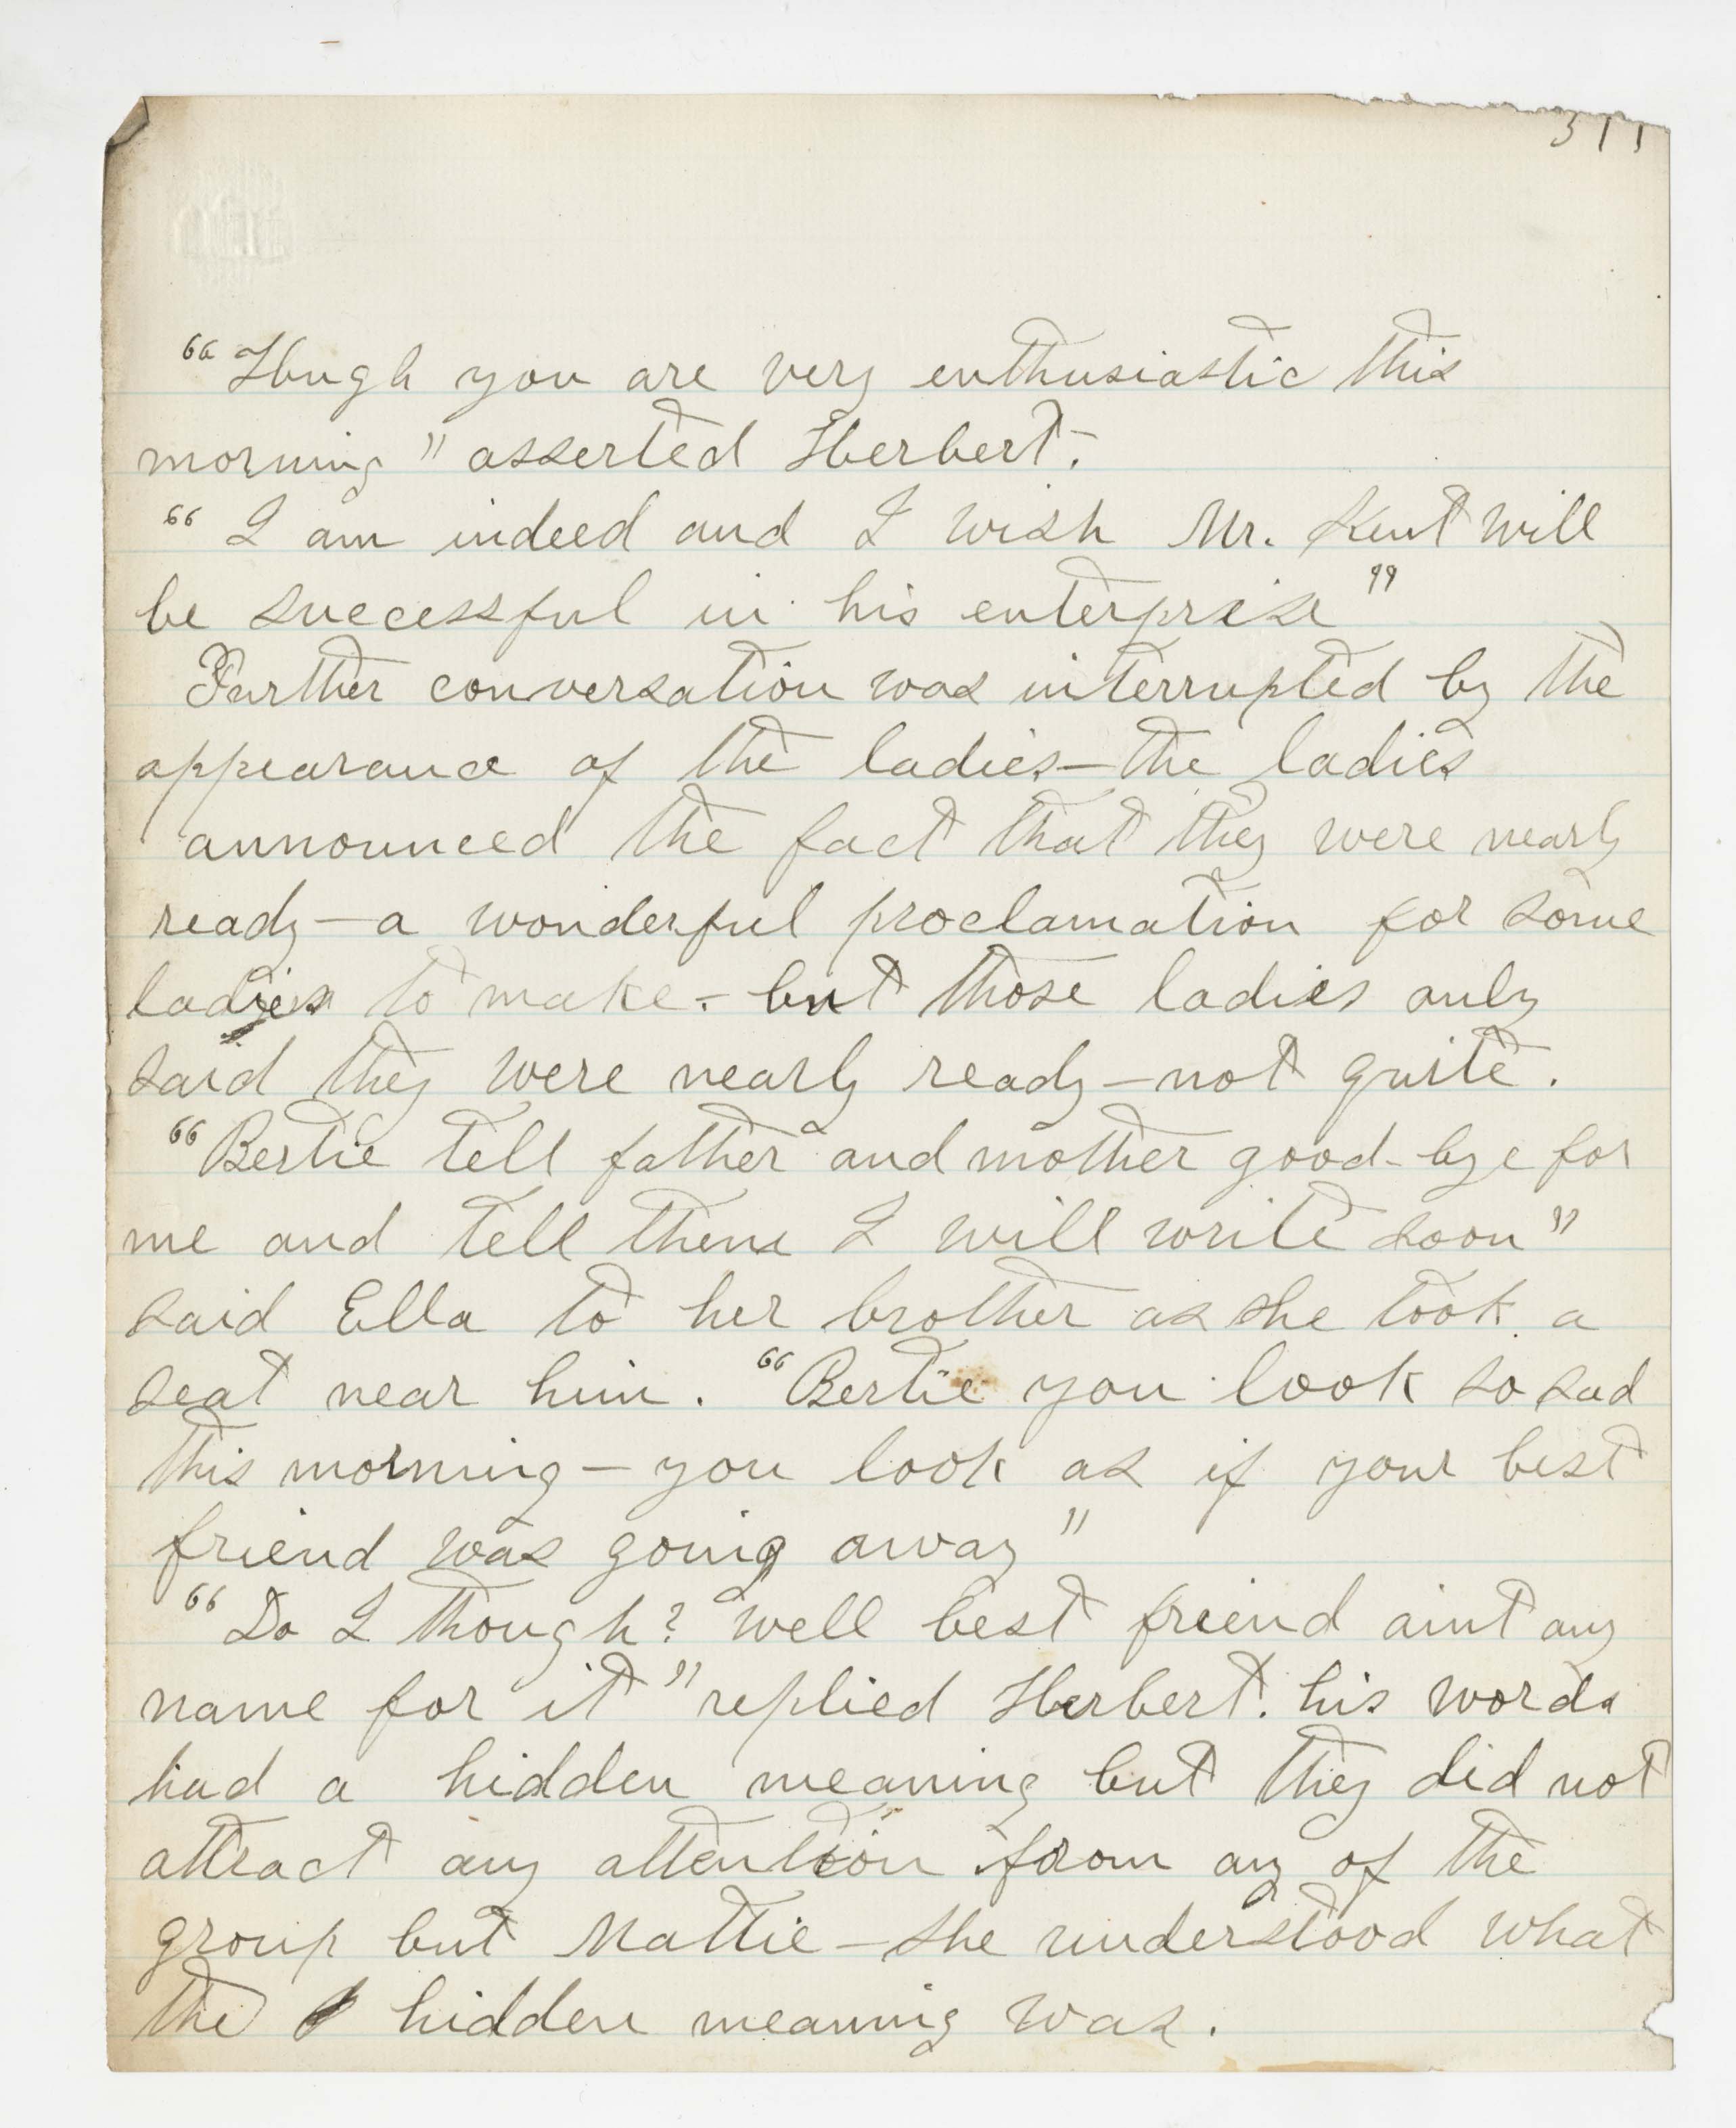 311
"Hugh you are very enthusiastic this
morning" asserted Herbert.
"I am indeed and I wish Mr. Kent will
be successful in his enterprise"
Further conversation was interrupted by the
appearance of the ladies—the ladies
announced the fact that they were nearly
ready—a wonderful proclamation for some
ladies to make - but those ladies only
said they were nearly ready—not quite.
"Bertie tell father and mother good-bye for
me and tell them I will write soon"
said Ella to her brother as she took a
seat near him. "Bertie you look so sad
this morning—you look as if your best
friend was going away"
"Do I though? well best friend aint any
name for it" replied Herbert. his words
had a hidden meaning but they did not
attract any attention from any of the
group but Mattie—she understood what
the hidden meaning was.